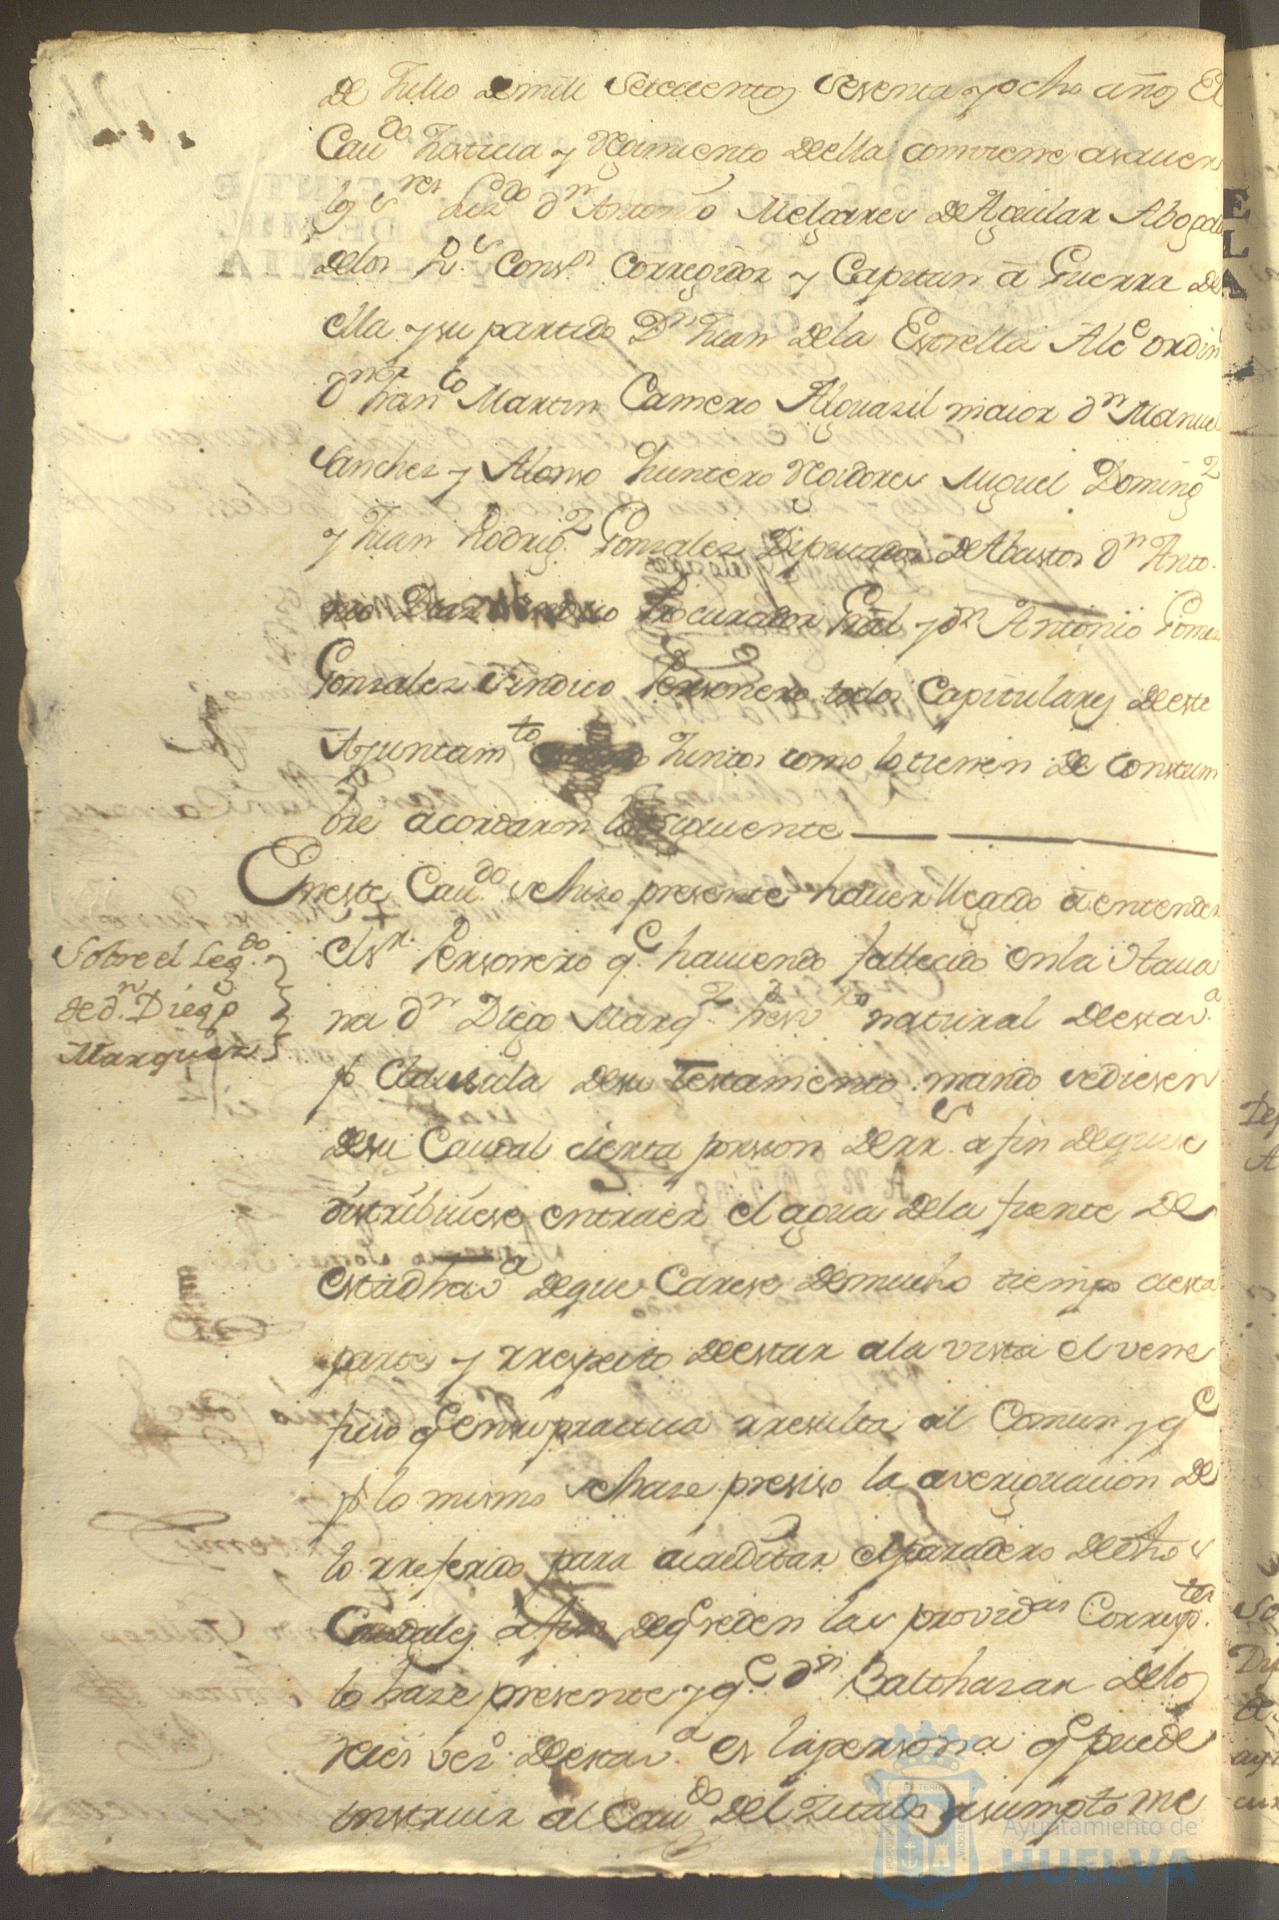 de Julio de mill setecientos sesenta y ocho años El
Cau.do Justicia y Regimiento de ella combiene a saver
los s.res Liz.do d.n Antonio Melgarex de Aguilar Abogado
de los R.s Cons.s Corregidor y Capitan â Guerra de
ella y su partido D.n Juan de la Estrella Alc.e ordin.o
d.n Fran.co Martin Camero Alguasil maior d.n Manuel
Sanchez y Alonso Quintero Regidores Miguel Doming.z
y Juan Rodrig.z Gonzalez Diputados de Abastos d.n Anto-
nio Diaz Procurador Gral y d.n Antonio Gomez
Gonzalez Sindico Personero todos Capitulares de este
Ayuntam.to Juntos como lo tienen de Costum
bre acordaron lo siguiente
En este Cau.do se hizo presente haver llegado â entender
Sobre el Leg.do
de d.n Diego
Marquez
el s.r Personero q.e haviendo fallecido en la Hava
na d.n Diego Marq.z natural de esta v.a
p.r Clausula de su testamento mando se diesen
de su Caudal cierta porsion de rr.s a fin de que se
distribuiese en traer el agua de la fuente de
esta dha v.a de que Carese de mucho tiempo a esta
parte y rrespecto de estar a la vista el vene
ficio q.e en su practica rresulta al Comun y q.e
p.r lo mismo se hase presiso la averiguacion de
lo rreferido para acreditar el paradero de dhos
Caudales a fin de q.e se den las provid.as Corresp.tes
lo hase presente y q.e d.n Balthazar de los
Reies vez.o de esta v.a es la persona q.e puede
instruir al Cau.do del zitado asumpto me
Ayuntamiento de
HUELVA